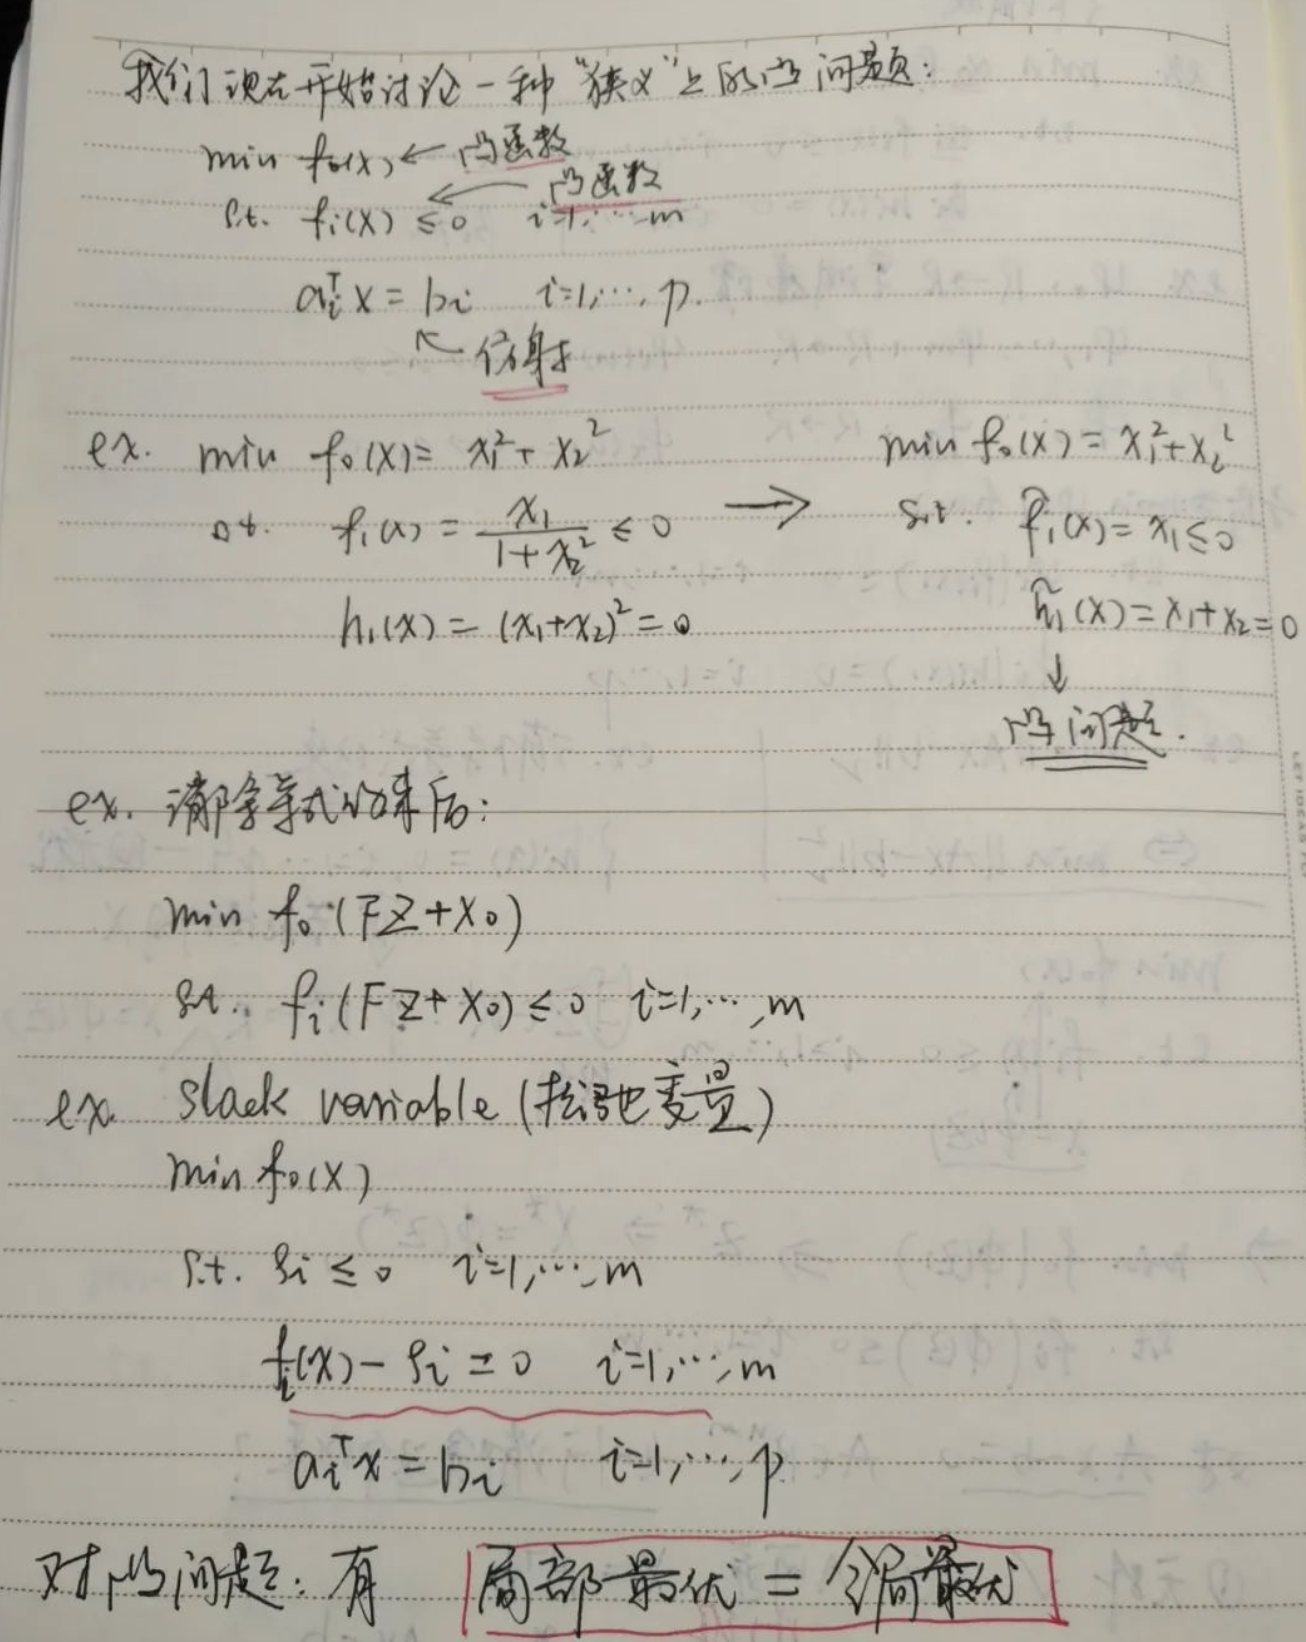 我们现在开始讨论一种"狭义"上的凸问题:
min f₀(x) ← 凸函数
s.t. fᵢ(x) ≤ 0 i=1,…m ← 凸函数
aᵢᵀx = bᵢ i=1,…,p.
↖ 仿射
ex. min f₀(x) = x₁² + x₂² → min f₀(x) = x₁² + x₂²
s.t. f₁(x) = x₁/(1+x₂²) ≤ 0 s.t. f̃₁(x) = x₁ ≤ 0
h₁(x) = (x₁+x₂)² = 0 h̃₁(x) = x₁+x₂ = 0
↓
凸问题.
ex. 消除等式约束后:
min f₀(Fz+x₀)
s.t. fᵢ(Fz+x₀) ≤ 0 i=1,…,m
ex. slack variable (松弛变量)
min f₀(x)
s.t. sᵢ ≤ 0 i=1,…,m
fᵢ(x) - sᵢ = 0 i=1,…,m
aᵢᵀx = bᵢ i=1,…,p
对凸问题: 有 局部最优 = 全局最优